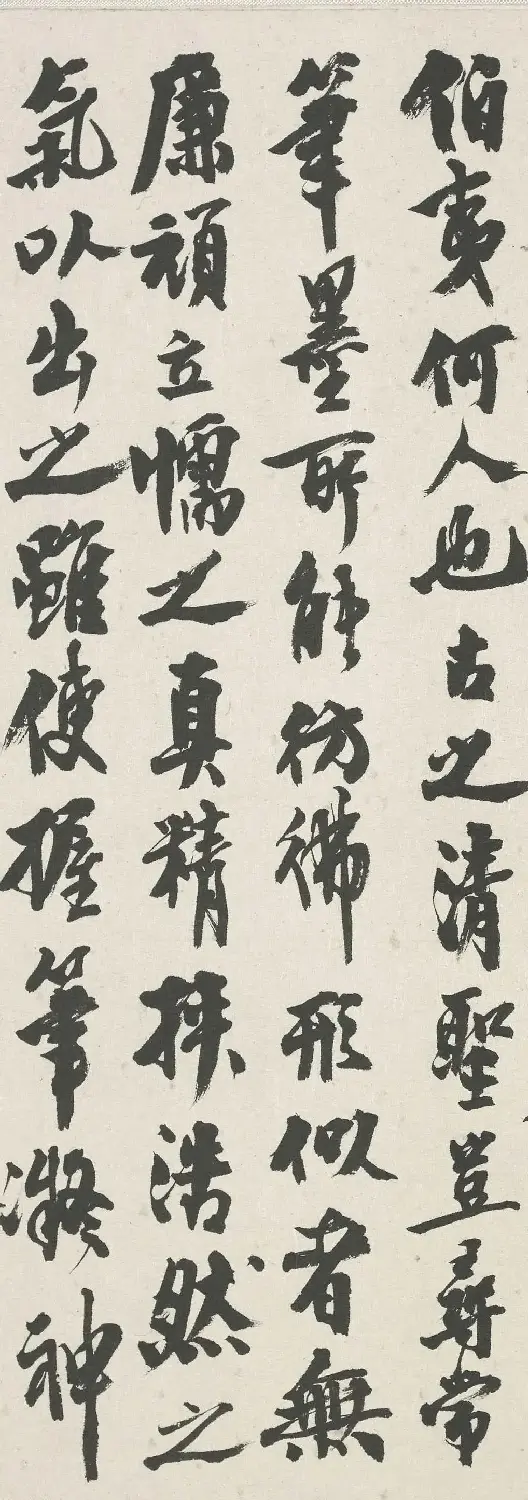 伯夷何人也古之清聖豈尋常
筆墨所能彷彿形似者無
廉頑立懦之真精挾浩然之
氣以出之雖使握筆凝神